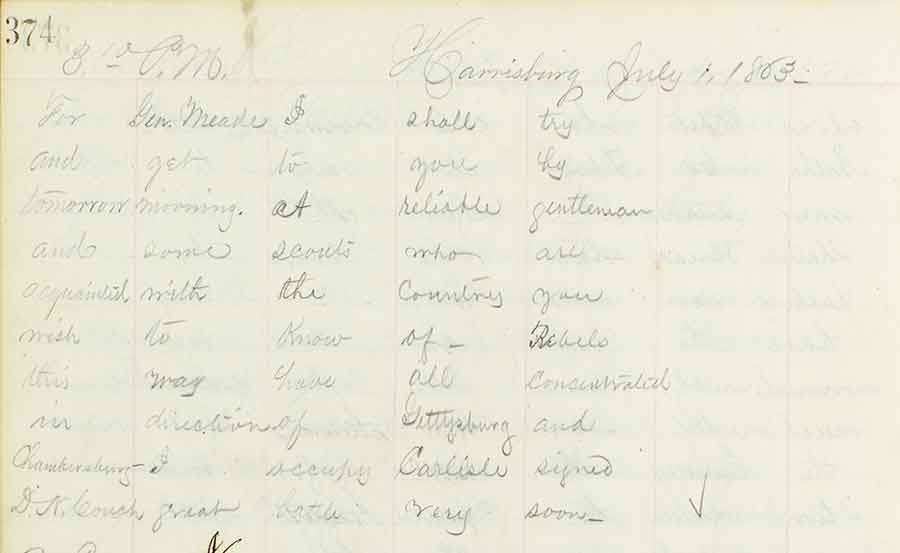 374
3 10 P.M. Harrisburg July 1, 1863-
For Gen. Meade I shall try
and get to you by
tomorrow morning. at reliable gentleman
and some scouts who are
acquainted with the Country you
wish to know of - Rebels
this way have all Consentrated
in direction of Gettysburg and
Chambersburg - I occupy Carlisle signed
D. N. Couch great battle very soon -